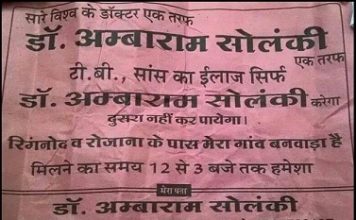 सारे विश्व के डॉक्टर एक तरफ
डॉ. अम्बाराम सोलंकी
एक तरफ
टी.बी., सांस का ईलाज सिर्फ
डॉ. अम्बाराम सोलंकी करेगा
दुसरा नहीं कर पायेगा।
रिंगनोद व रोजाना के पास मेरा गांव बनवाड़ा है
मिलने का समय 12 से 3 बजे तक हमेशा
मेरा पता
डॉ. अम्बाराम सोलंकी